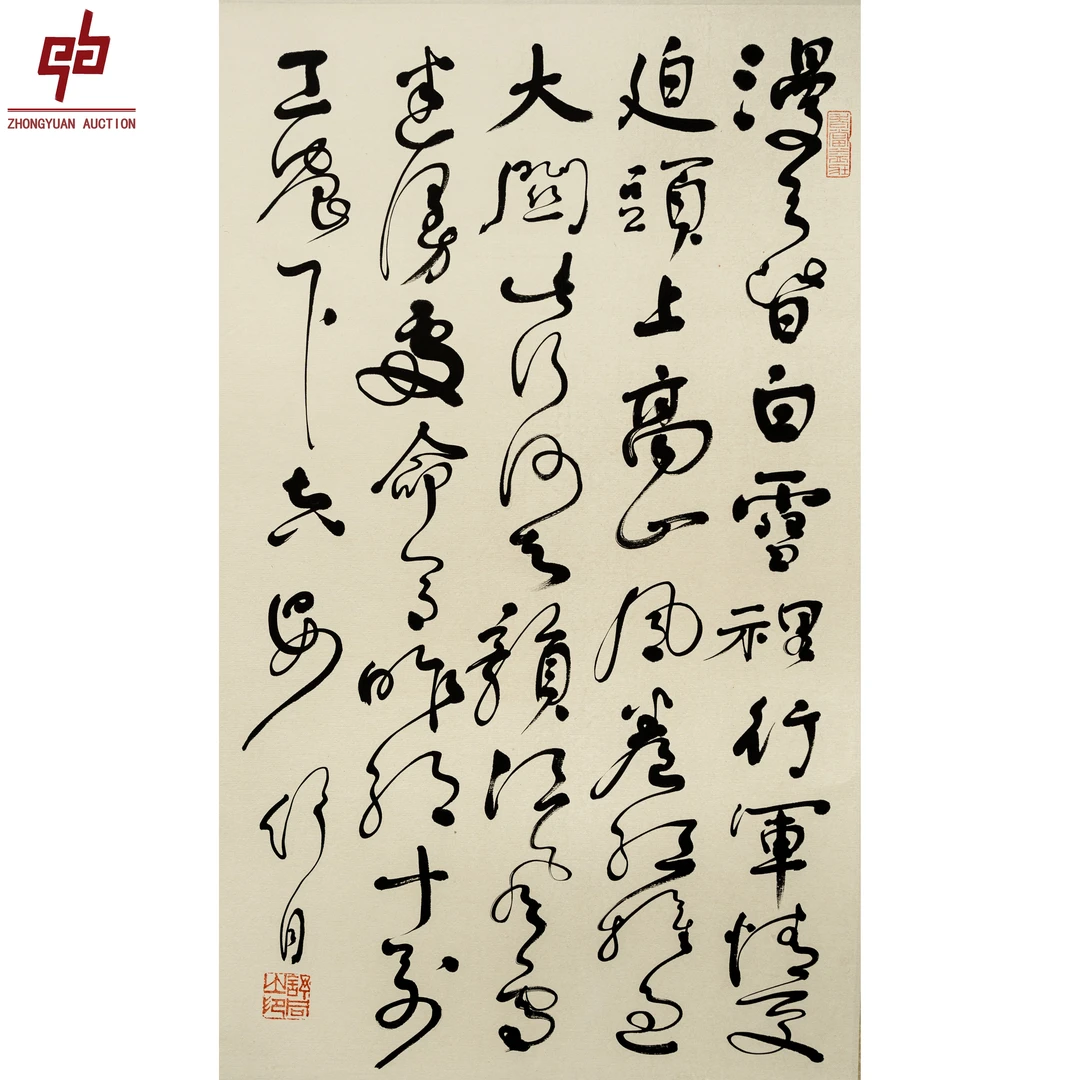 ZHONGYUAN AUCTION
漫天皆白雪裡行軍情更
迫頭上高山風卷紅旗過
大關此行何去贛江風雪
迷漫處命令昨頒十萬
工農下吉安 舒同
舒同之印